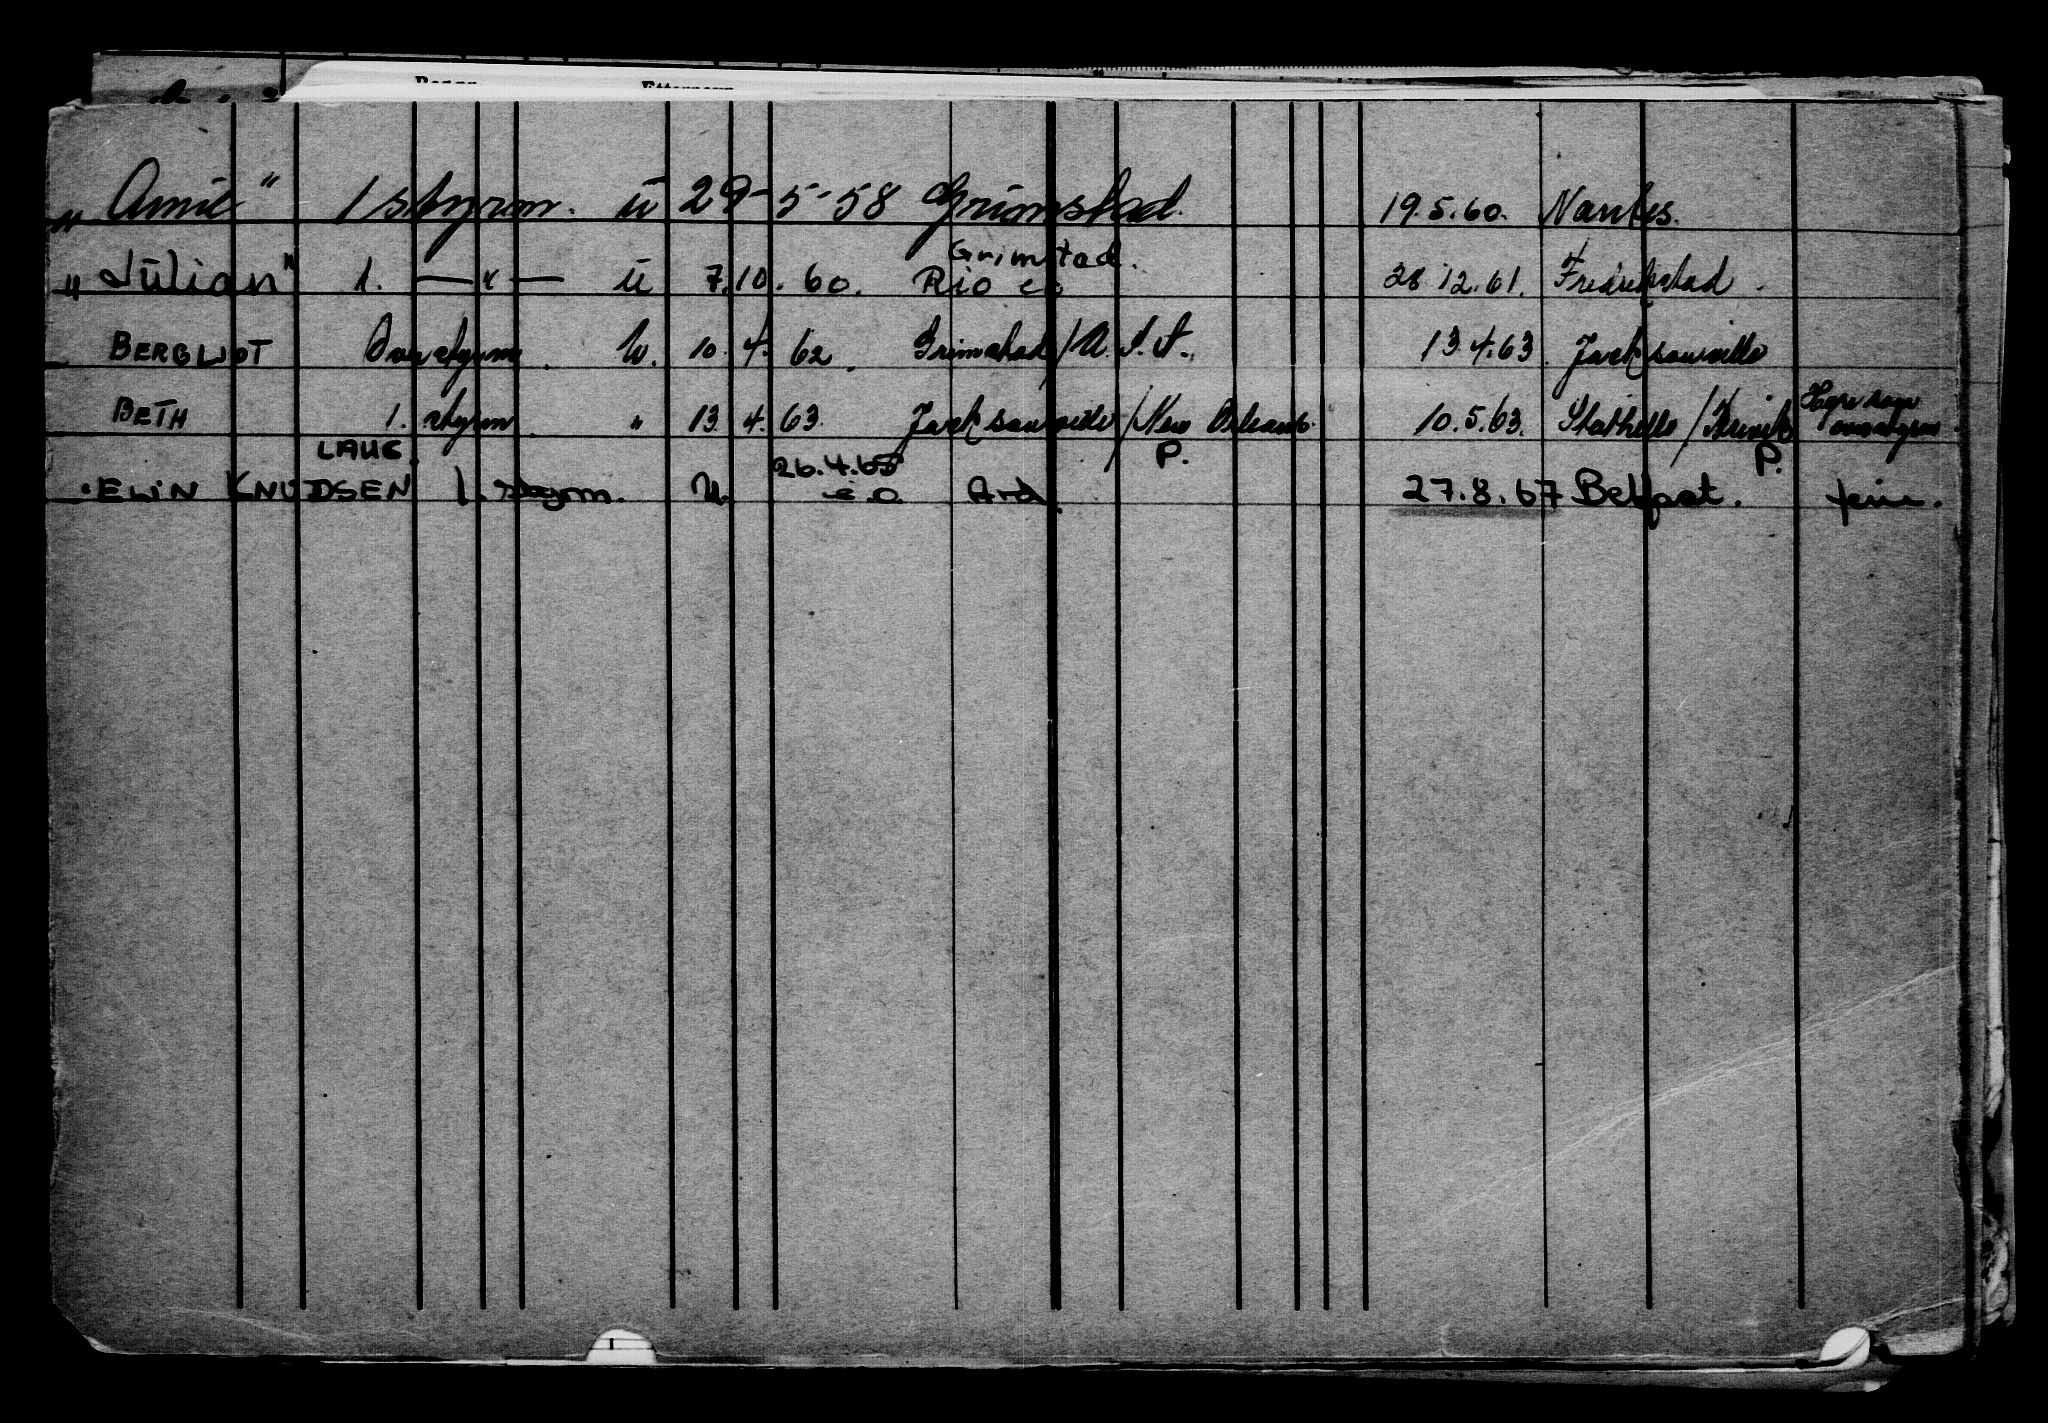 „ Amie" 1 styrm. ü 29-5-58 Grimstad. 19.5.60. Nantes.
Grimstad.
„ Julian" 1. —"— ü 7.10.60. Rio 28.12.61. Fredrikstad.
BERGLJOT 10.4.62. Grimstad / 13.4.63. Jacksonville
BETH 1. styrm. " 13 4. 63. Jacksonville / New Orleans. 10.5.63. Stathelle /
LAUG. 26.4.65 P. P.
ELIN KNUDSEN 1. styrm. U. Ard. 27.8.67 Belfast. ferie.